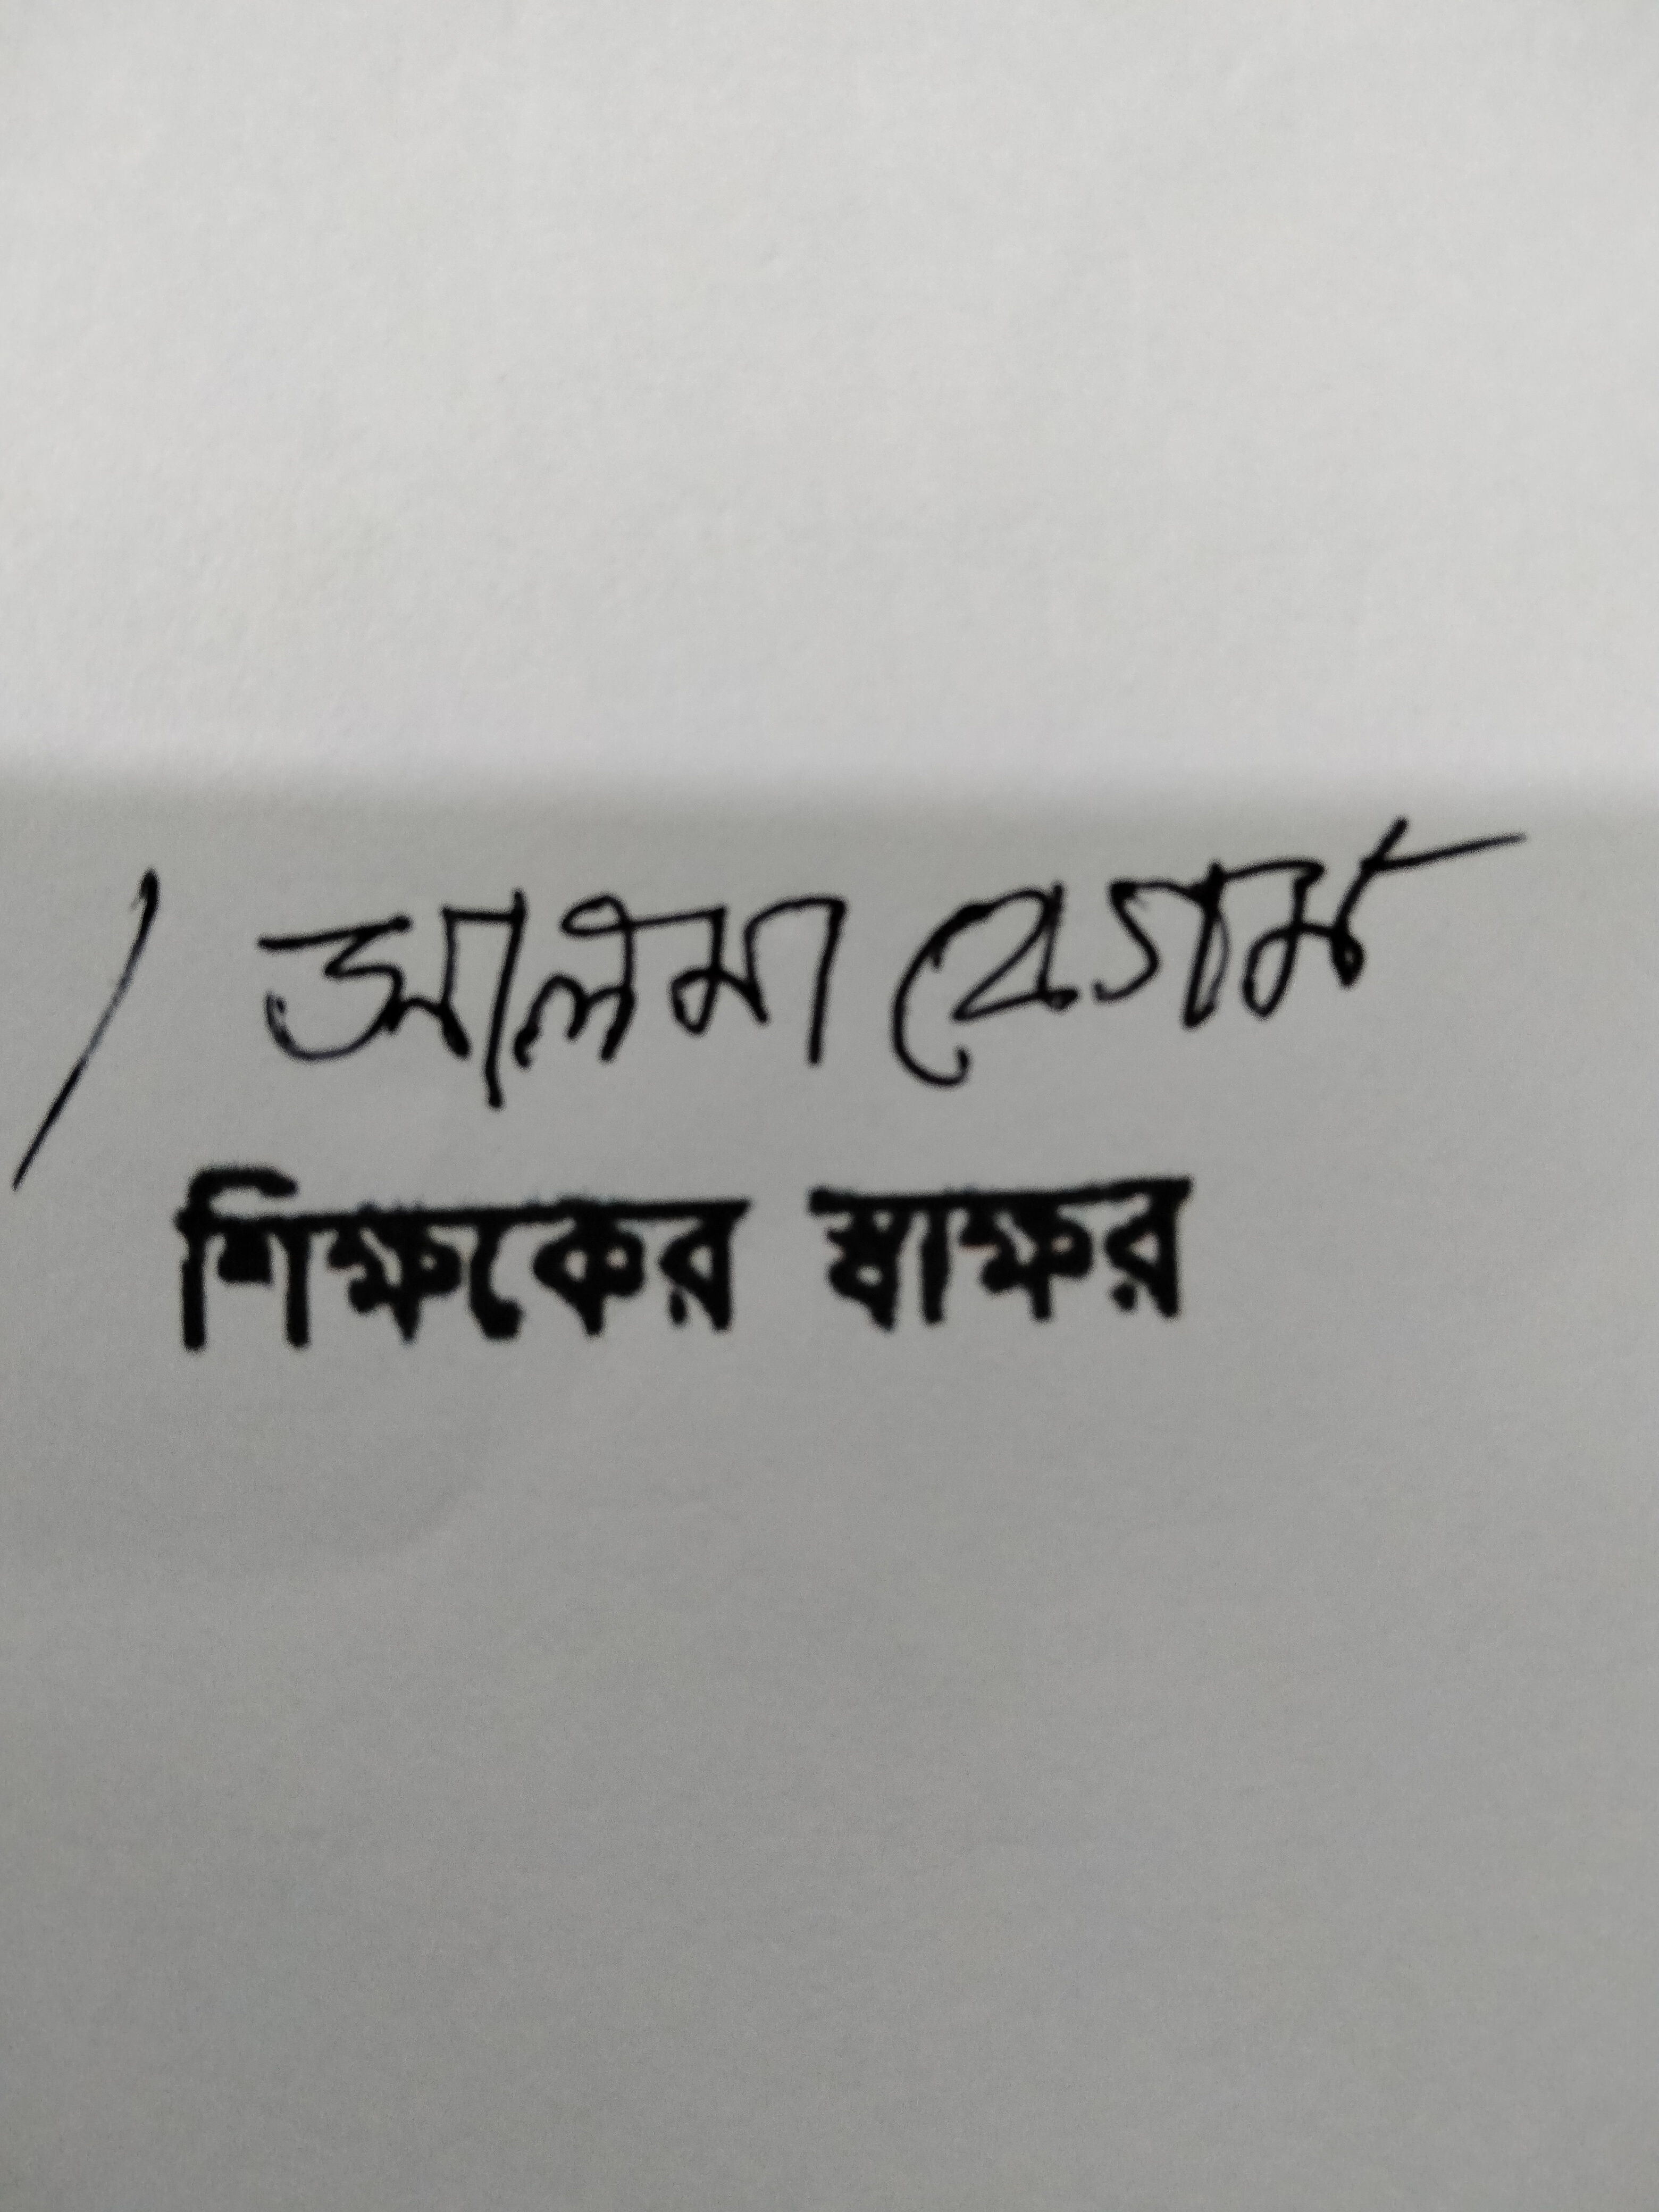 আলমা বেগম
শিক্ষকের স্বাক্ষর